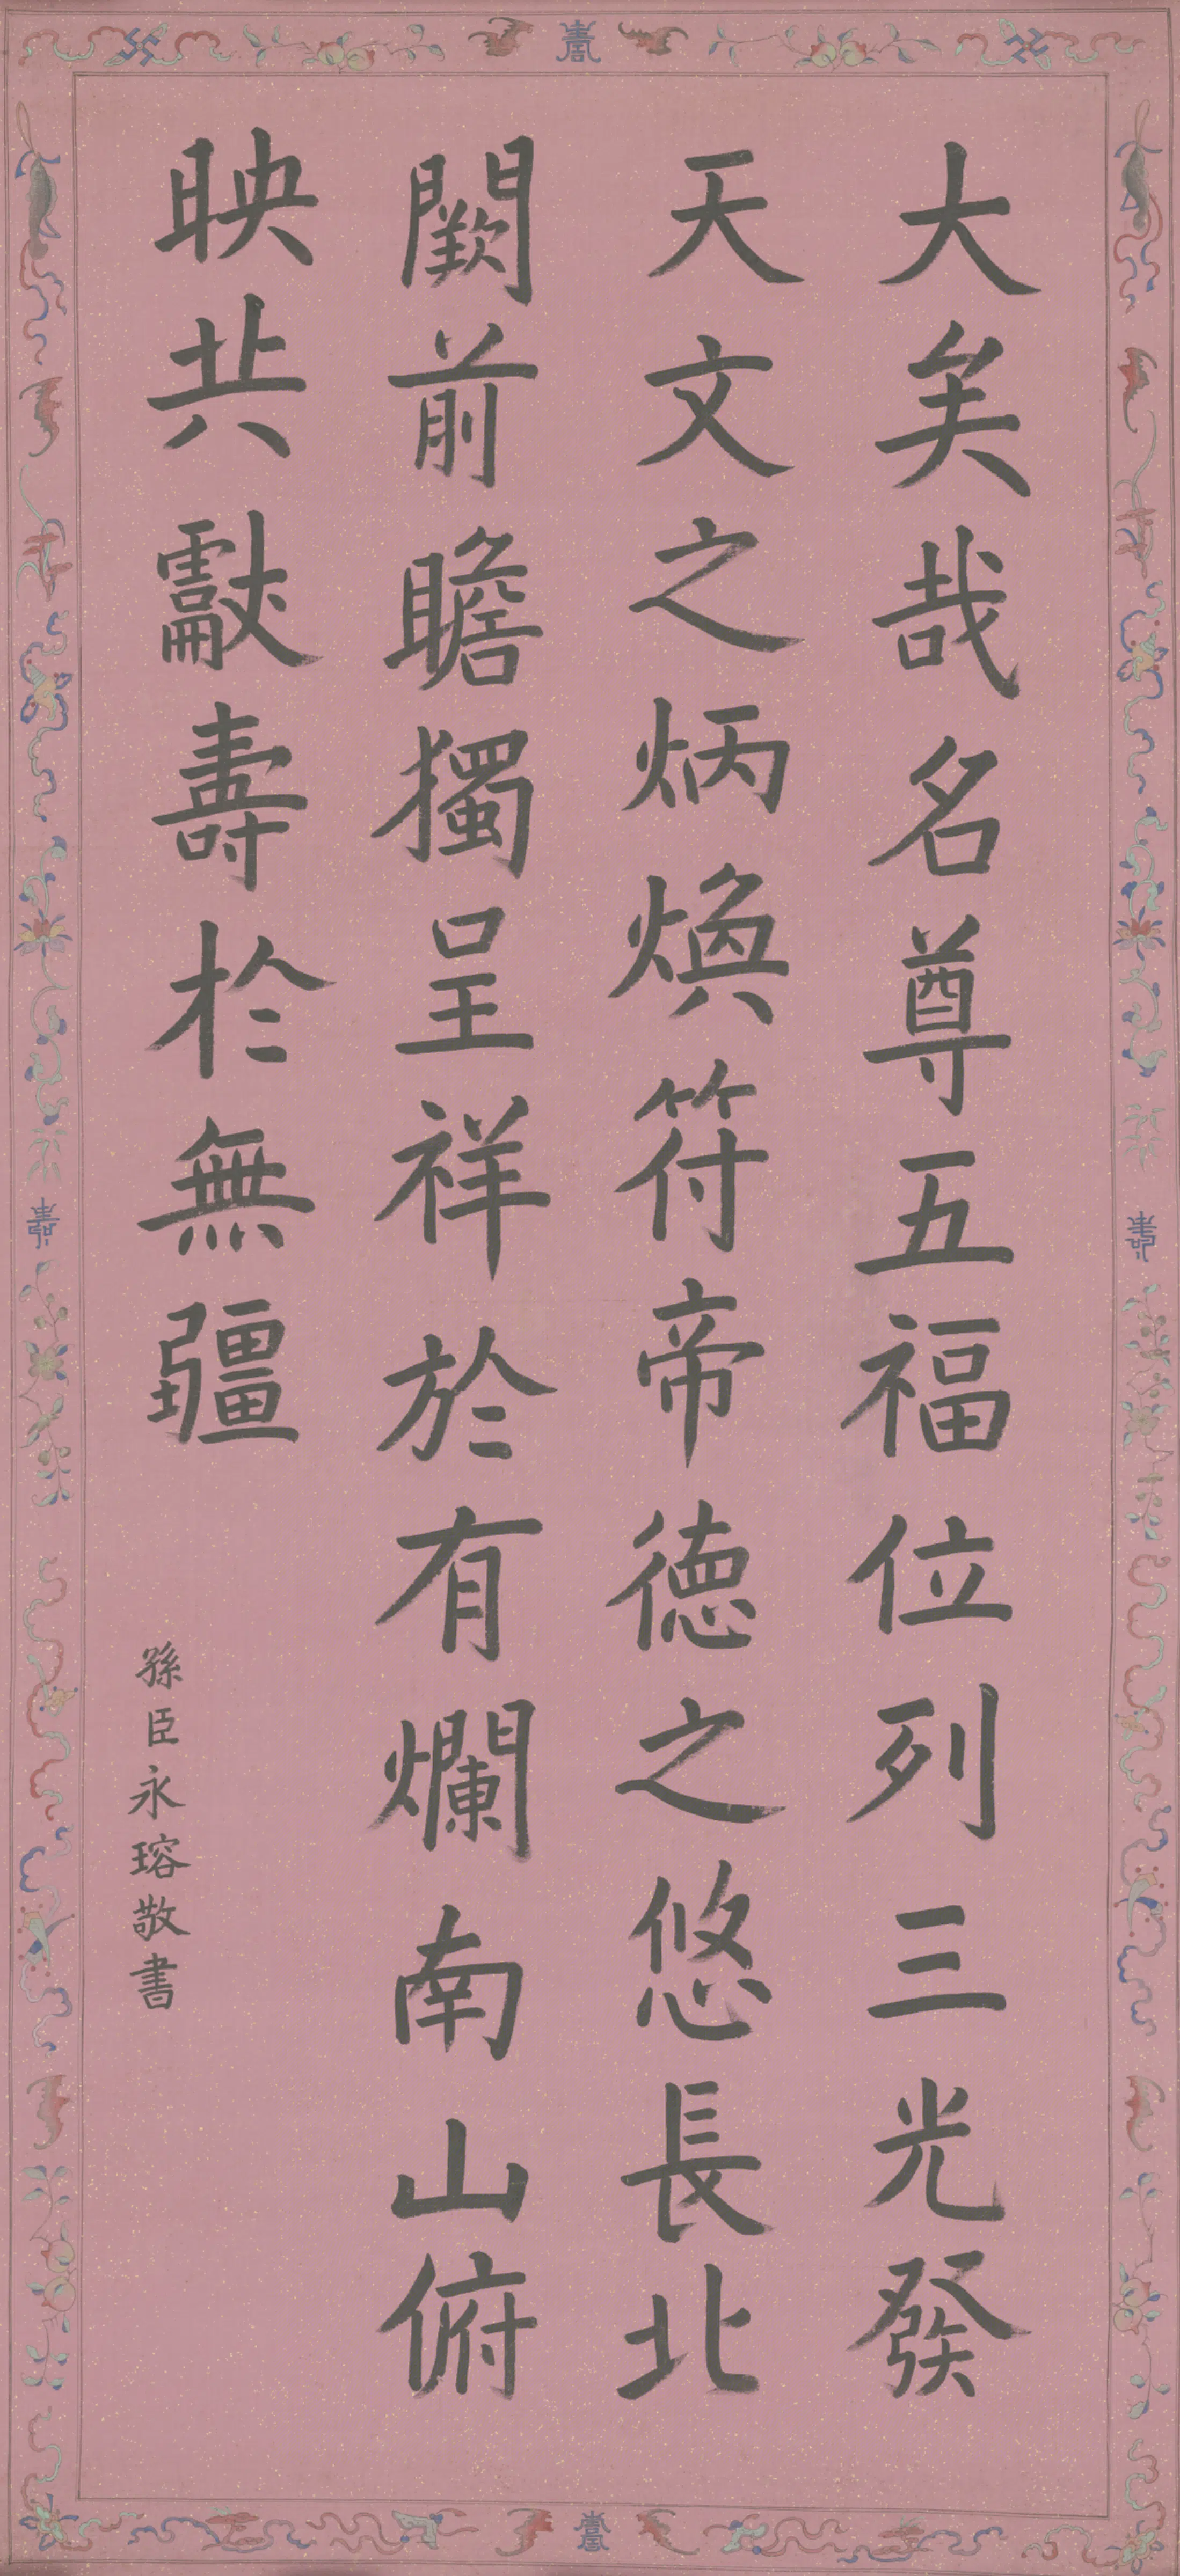 大矣哉名尊五福位列三光發
天文之炳煥符帝德之悠長北
闕前瞻獨呈祥於有爛南山俯
映共獻壽於無疆
孫臣永瑢敬書